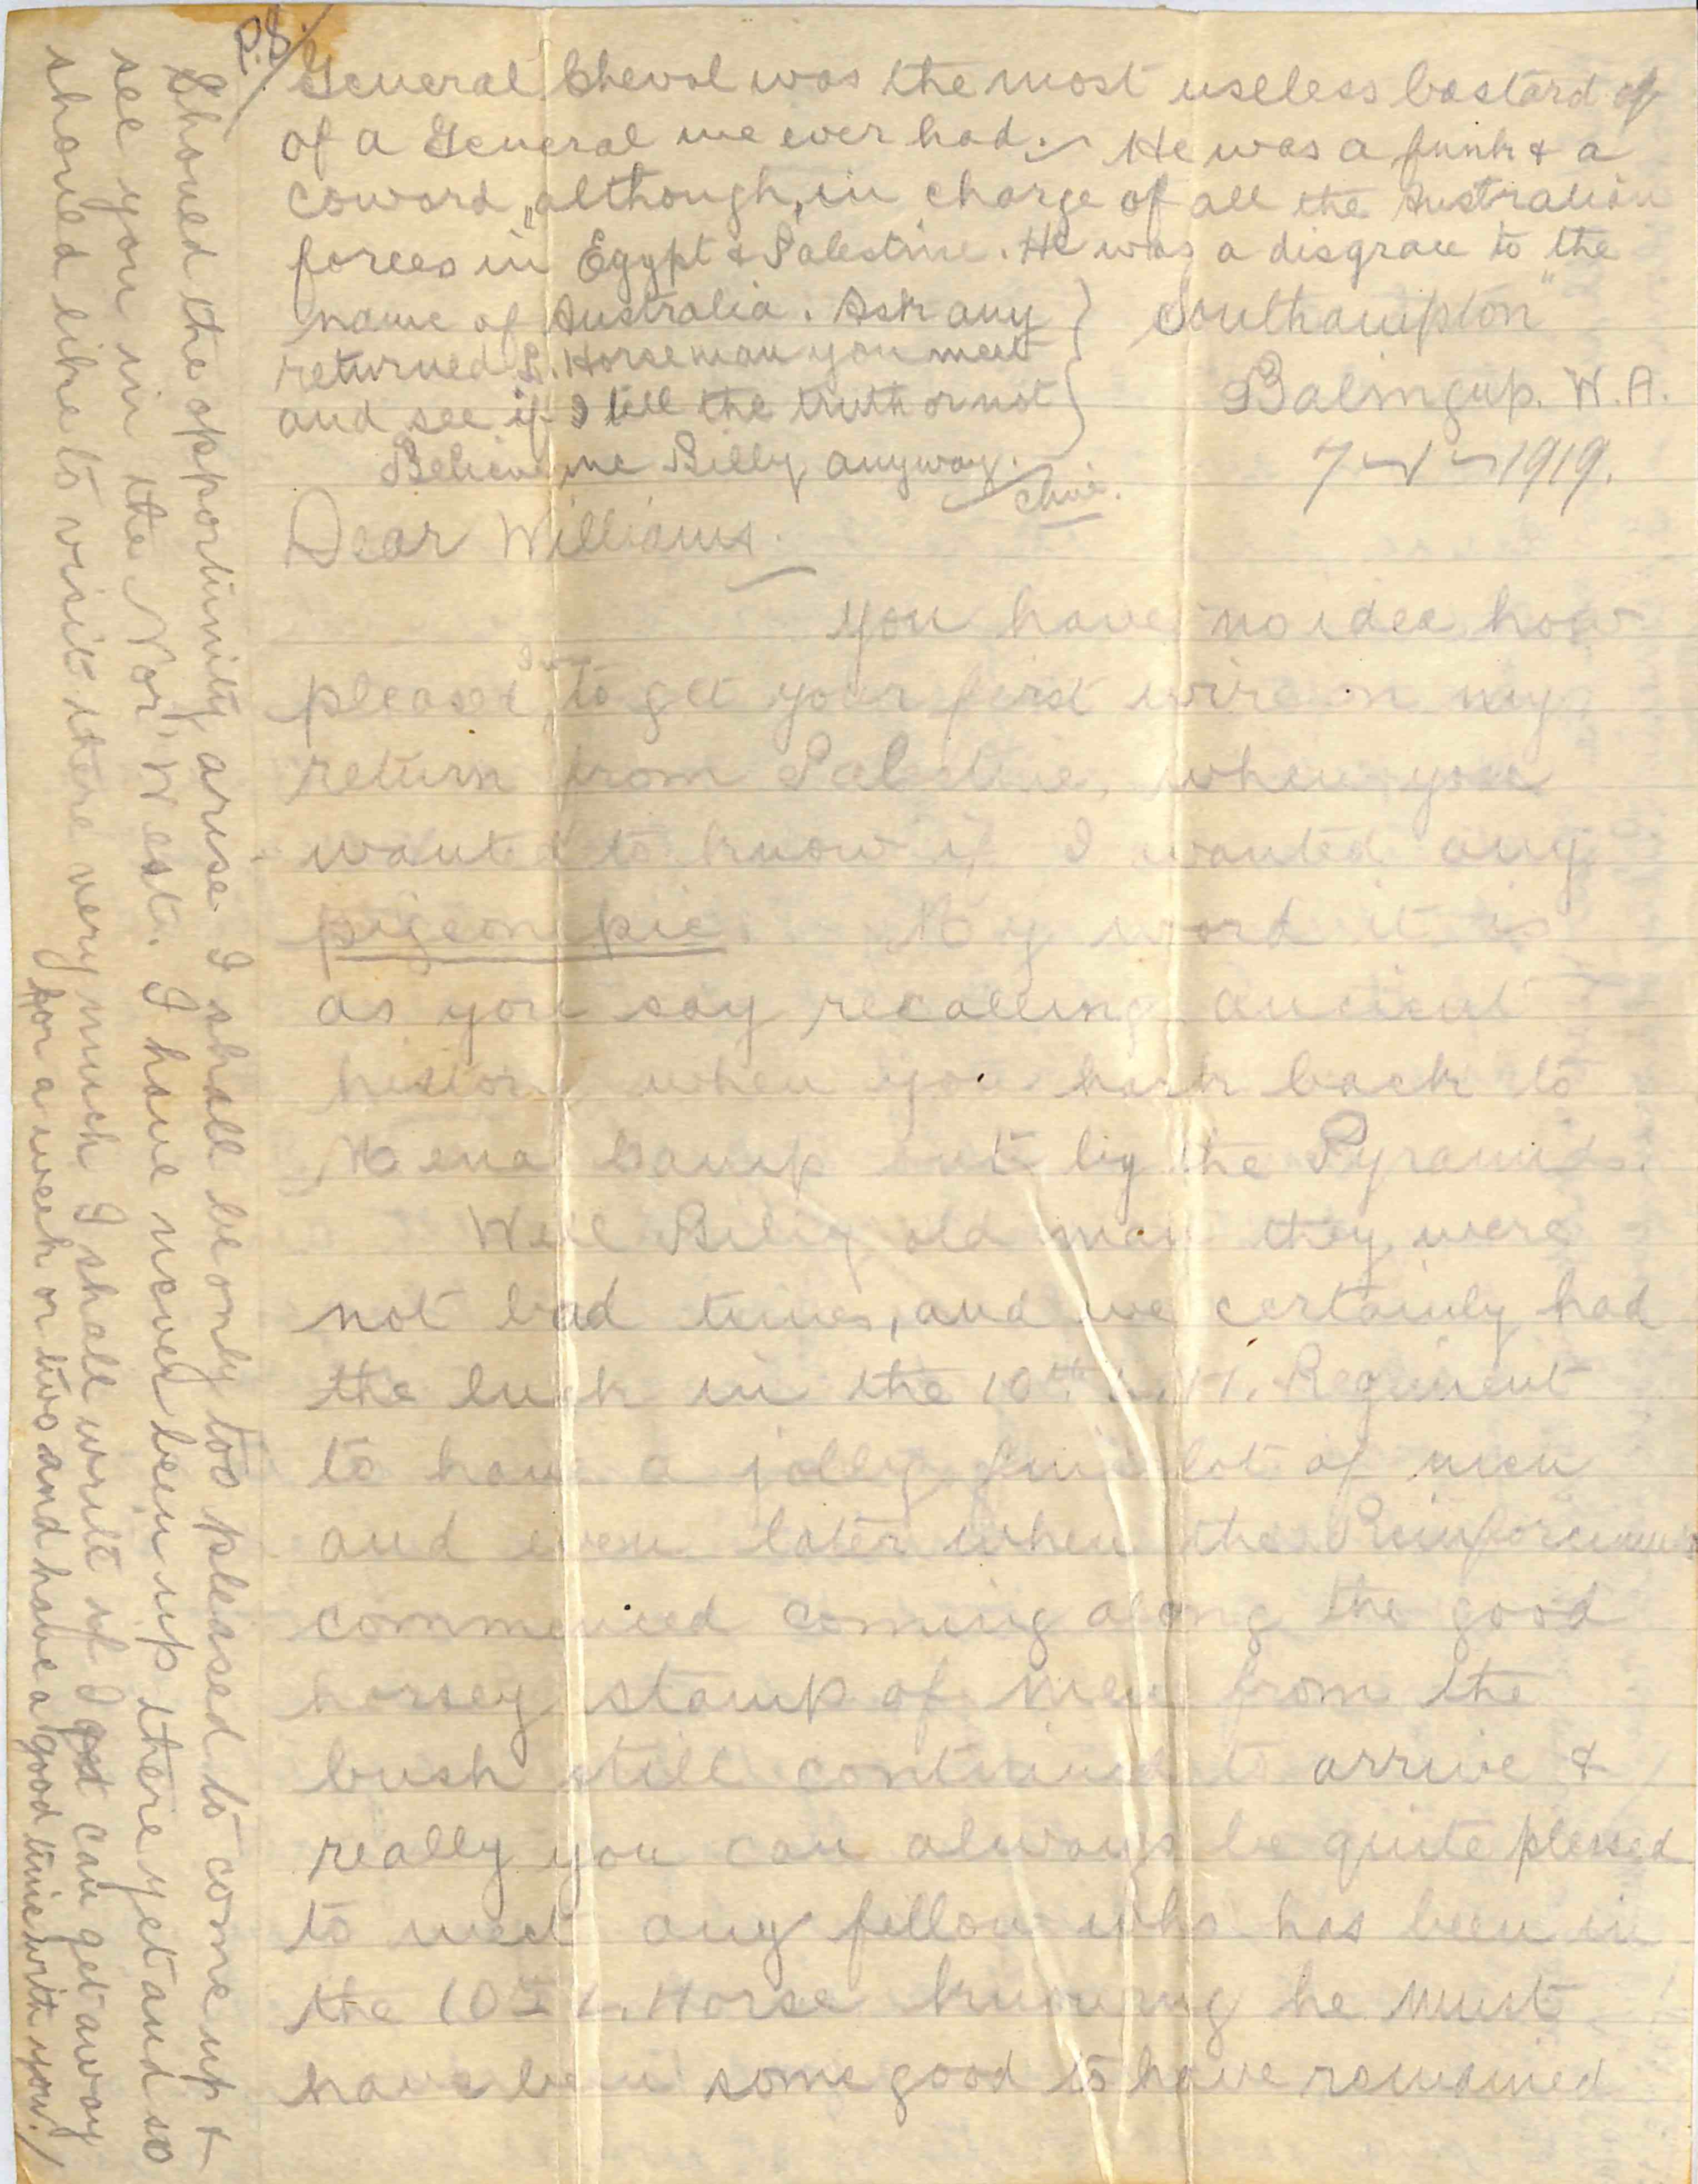 P.S/
General Cheval was the most useless bastard of
of a General we ever had. He was a funk & a
coward, although, in charge of all the Australian
forces in Egypt & Palestine. He was a disgrace to the
name of Australia. Ask any
returned L. Horseman you meet
and see if I tell the truth or not
Believe me Billy anyway.
Clive.
"Southampton"
Balingup. W.A.
7-1-1919.
Dear Williams.
You have no idea how
pleased I was to get your first wire on my
return from Palestine, when you
wanted to know if I wanted any
pigeon pie. My word it is
as you say recalling ancient
history when you hark back to
Mena Camp out by the Pyramids.
Well Billy old man they were
not bad times, and we certainly had
the luck in the 10th L.H. Regiment
to have a jolly fine lot of men
and even later when the Reinforcements
commenced coming along the good
horsey stamp of men from the
bush still continued to arrive &
really you can always be quite pleased
to meet any fellow who has been in
the 10th L. Horse knowing he must
have been some good to have remained
Should the opportunity arise I shall be only too pleased to come up &
see you in the Nor' West. I have never been up there yet and so
should like to visit there very much I shall write if I get can get away
for a week or two and have a good time with you./